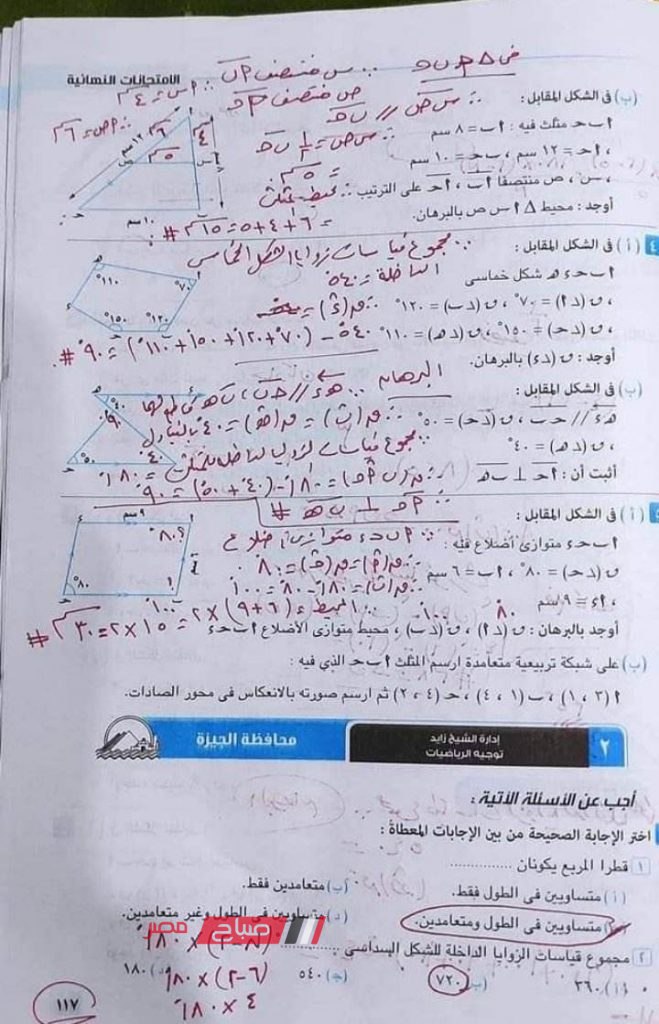 الامتحانات النهائية
فى △ ا ب ح ∵ س منتصف ا ب
∵ ص منتصف ا ح
∴ س ص // ب ح
∴ س ص = ١/٢ ب ح
= ٥ سم
∴ محيط المثلث
= ٦ + ٤ + ٥ = ١٥ سم #
(ب) فى الشكل المقابل :
ا ب ح مثلث فيه : ا ب = ٨ سم
، ا ح = ١٢ سم ، ب ح = ١٠ سم
، س ، ص منتصفا ا ب ، ا ح على الترتيب
أوجد : محيط △ ا س ص بالبرهان.
١٢ سم
١٠ سم
٤ (أ) فى الشكل المقابل :
∵ مجموع قياسات زوايا الشكل الخماسى
الداخلة = ٥٤٠
ا ب ح ء ه شكل خماسى
، ق (د ا) = ٧٠° ، ق (د ب) = ١٢٠°
، ق (د ح) = ١٥٠° ، ق (د ه) = ١١٠°
٥٤٠ - (٧٠ + ١٢٠ + ١٥٠ + ١١٠) = ٩٠° #
أوجد : ق (د ء) بالبرهان.
١١٠°
٧٠°
١٥٠°
١٢٠°
البرهان
(ب) فى الشكل المقابل :
∵ ه ء // ح ب ، ب ه قاطع لهما
ه ء // ح ب ، ق (د ح) = ٥٠°
∴ ق (ب) = ق (ه) = ٤٠° بالتبادل
، ق (د ه) = ٤٠°
∵ مجموع قياسات الزوايا الداخلة للمثلث = ١٨٠
أثبت أن : ا ح ⊥ ب ه
= ١٨٠ - (٤٠ + ٥٠) = ٩٠
∴ ا ح ⊥ ب ه #
٤٠°
٩٠
٤٠
٥٠°
٥ (أ) فى الشكل المقابل :
∵ ا ب ح ء متوازى اضلاع
ا ب ح ء متوازى أضلاع فيه :
∴ ق (ا) = ق (ح) = ٨٠
ق (د ح) = ٨٠° ، ا ب = ٦ سم
∴ ق (ب) = ١٨٠ - ٨٠ = ١٠٠
، ا ء = ٩ سم
∴ المحيط = (٦ + ٩) × ٢ = ١٥ × ٢ = ٣٠ سم #
٨٠
١٠٠
أوجد بالبرهان : ق (د ا) ، ق (د ب) ، محيط متوازى الأضلاع ا ب ح ء
٩ سم
٨٠°
(ب) على شبكة تربيعية متعامدة ارسم المثلث ا ب ح الذي فيه :
ا (٣ ، ١) ، ب (١ ، ٤) ، ح (٤ ، ٢) ثم ارسم صورته بالانعكاس فى محور الصادات.
٢
إدارة الشيخ زايد
توجيه الرياضيات
محافظة الجيزة
أجب عن الأسئلة الآتية :
اختر الإجابة الصحيحة من بين الإجابات المعطاة :
١ قطرا المربع يكونان ............
(أ) متساويين فى الطول فقط.
(ب) متعامدين فقط.
متساويين فى الطول ومتعامدين.
(د) متساويين فى الطول وغير متعامدين.
٢ مجموع قياسات الزوايا الداخلة للشكل السداسى ............
(أ) ٣٦٠
(ب) ٧٢٠
(ج) ٥٤٠
(د) ١٨٠
(٢-٦) × ١٨٠
٤ × ١٨٠
صباح مصر
١١٧